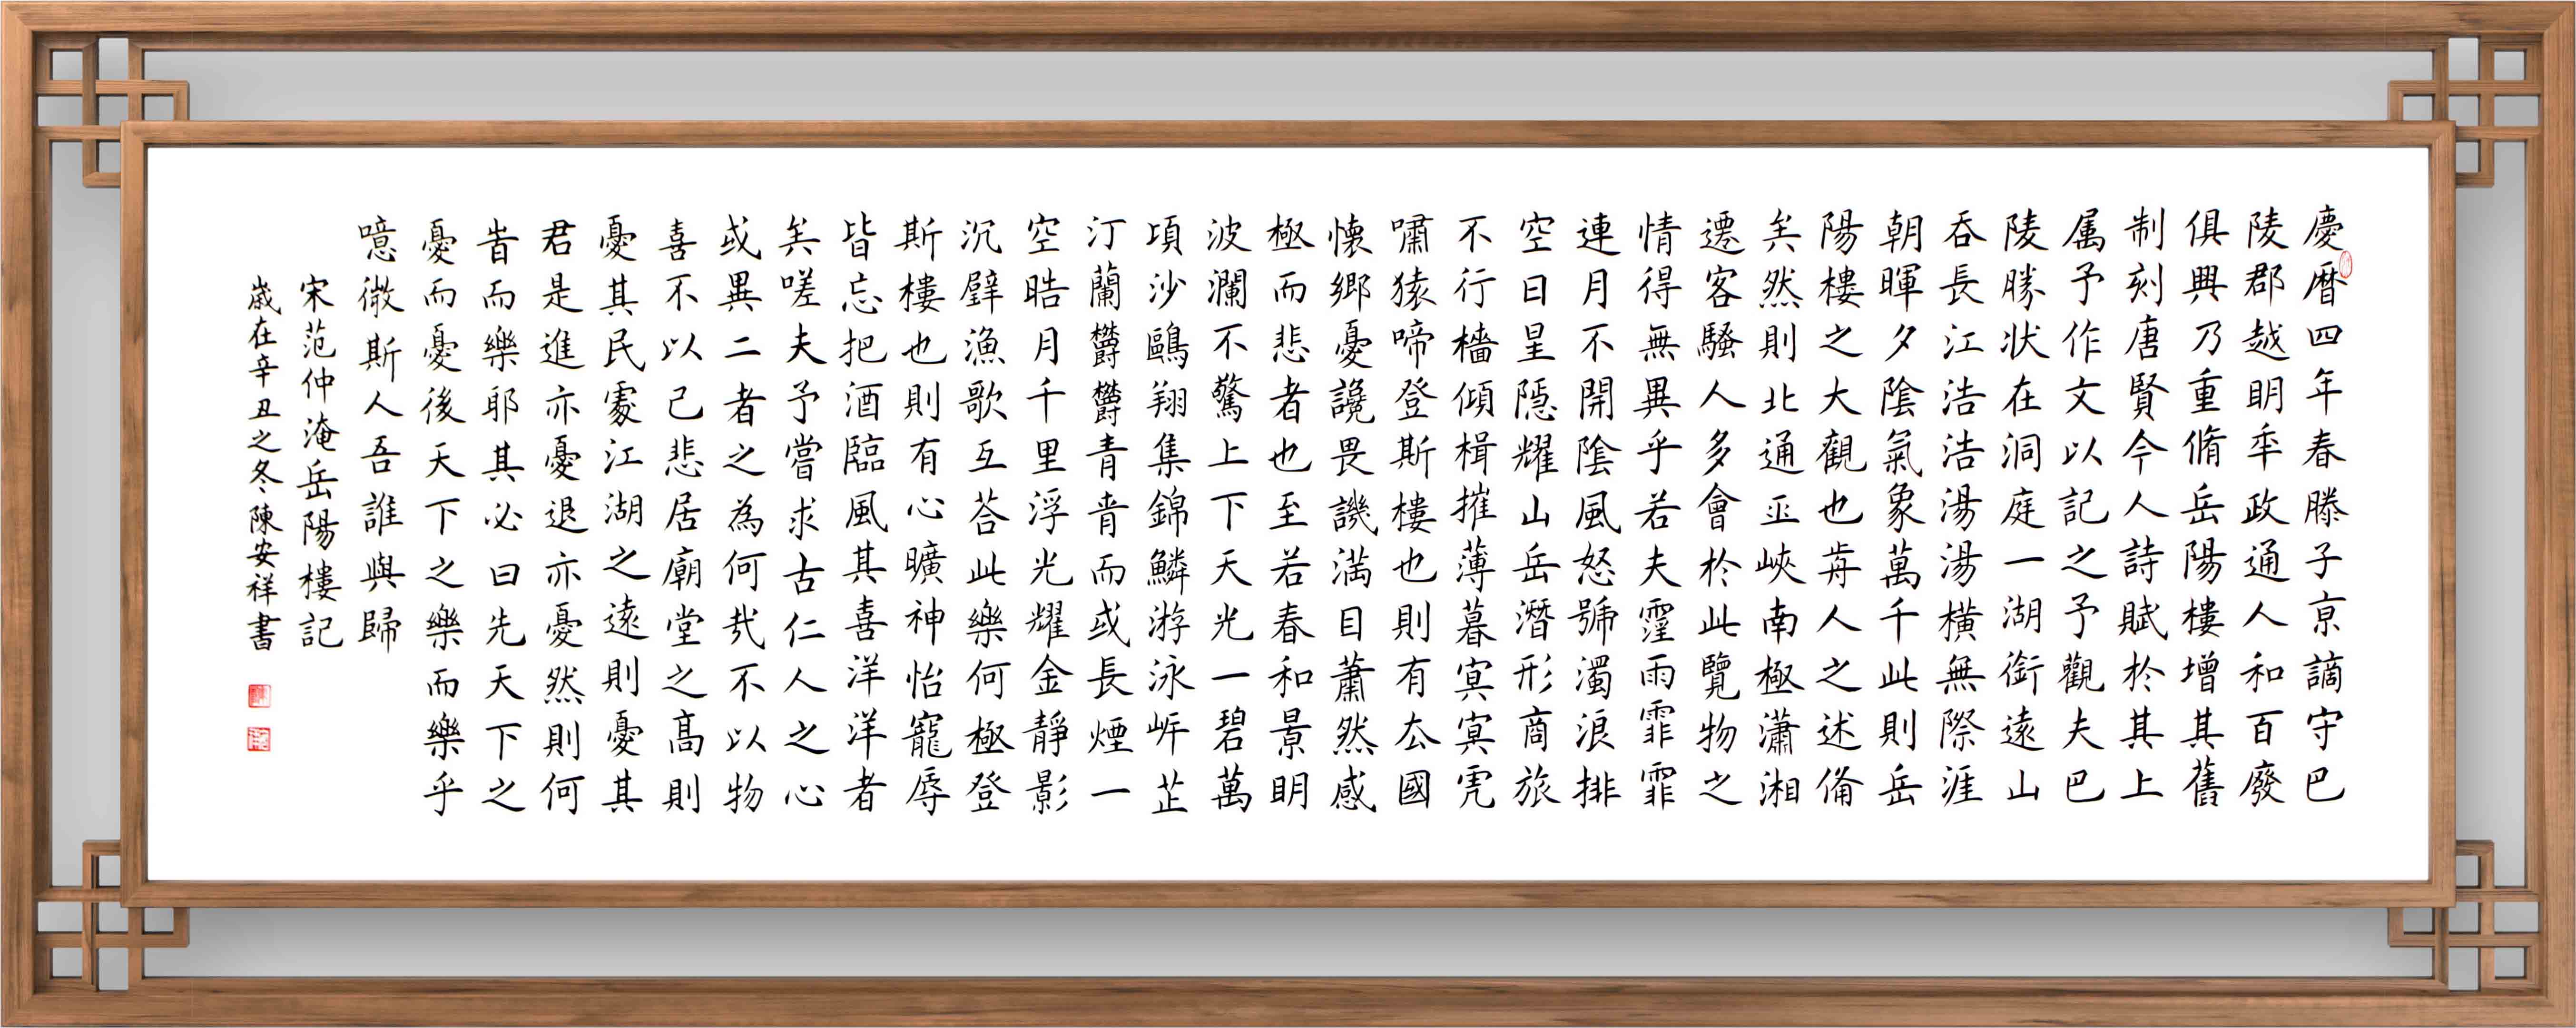 慶暦四年春滕子亰謫守巴
陵郡越明年政通人和百廢
俱興乃重脩岳陽樓增其舊
制刻唐賢今人詩賦於其上
属予作文以記之予觀夫巴
陵勝状在洞庭一湖銜遠山
吞長江浩浩湯湯橫無際涯
朝暉夕陰氣象萬千此則岳
陽樓之大觀也前人之述備
矣然則北通巫峽南極瀟湘
遷客騷人多會於此覽物之
情得無異乎若夫霪雨霏霏
連月不開陰風怒號濁浪排
空日星隱耀山岳潛形商旅
不行檣傾楫摧薄暮冥冥虎
嘯猿啼登斯樓也則有去國
懷鄉憂讒畏譏滿目蕭然感
極而悲者也至若春和景明
波瀾不驚上下天光一碧萬
頃沙鷗翔集錦鱗游泳岸芷
汀蘭欝欝青青而或長煙一
空皓月千里浮光耀金靜影
沉璧漁歌互荅此樂何極登
斯樓也則有心曠神怡寵辱
皆忘把酒臨風其喜洋洋者
矣嗟夫予嘗求古仁人之心
或異二者之為何哉不以物
喜不以己悲居廟堂之高則
憂其民處江湖之遠則憂其
君是進亦憂退亦憂然則何
旹而樂耶其必曰先天下之
憂而憂後天下之樂而樂乎
噫微斯人吾誰與歸
宋范仲淹岳陽樓記
歲在辛丑之冬陳安祥書